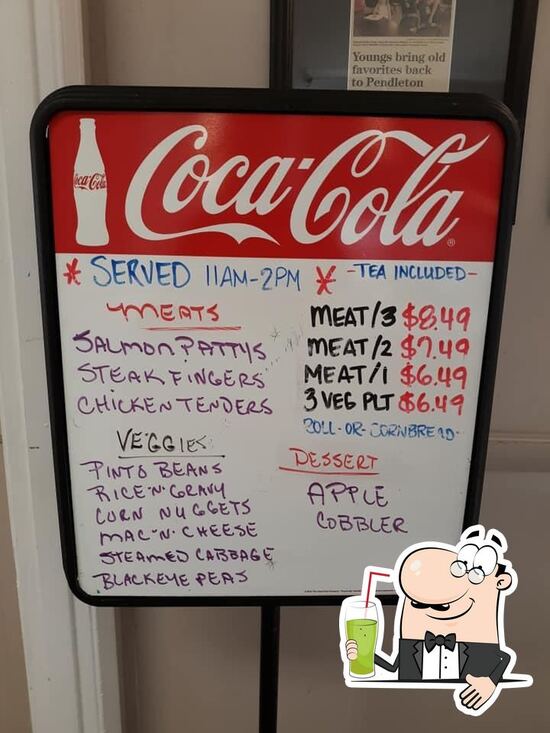 Youngs bring old
favorites back
to Pendleton
Coca-Cola
Coca-Cola
* SERVED 11AM-2PM * -TEA INCLUDED-
MEATS
SALMON PATTYS
STEAK FINGERS
CHICKEN TENDERS
VEGGIES
PINTO BEANS
RICE 'N' GRAVY
CORN NUGGETS
MAC 'N' CHEESE
STEAMED CABBAGE
BLACKEYE PEAS
MEAT/3 $8.49
MEAT/2 $7.49
MEAT/1 $6.49
3 VEG PLT $6.49
ROLL-OR-CORNBREAD-
DESSERT
APPLE
COBBLER